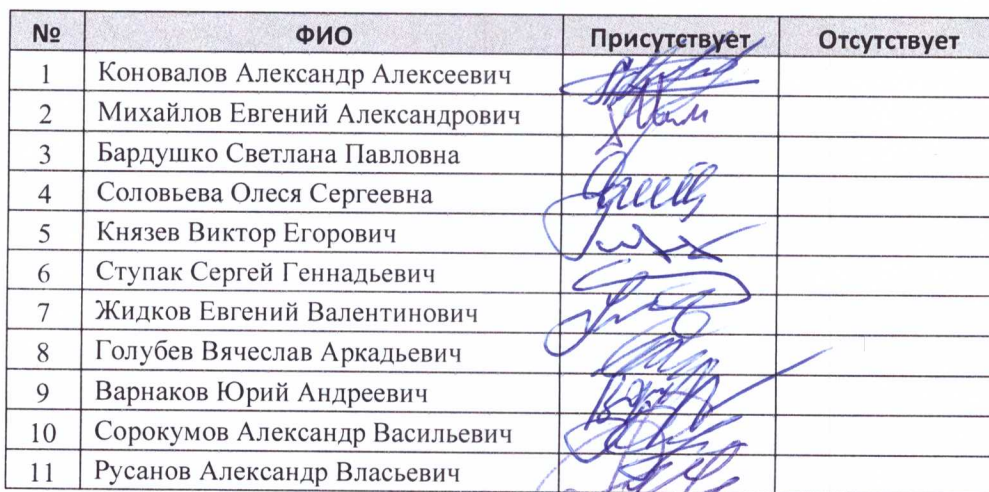 № ФИО Присутствует Отсутствует
1 Коновалов Александр Алексеевич
2 Михайлов Евгений Александрович
3 Бардушко Светлана Павловна
4 Соловьева Олеся Сергеевна
5 Князев Виктор Егорович
6 Ступак Сергей Геннадьевич
7 Жидков Евгений Валентинович
8 Голубев Вячеслав Аркадьевич
9 Варнаков Юрий Андреевич
10 Сорокумов Александр Васильевич
11 Русанов Александр Власьевич